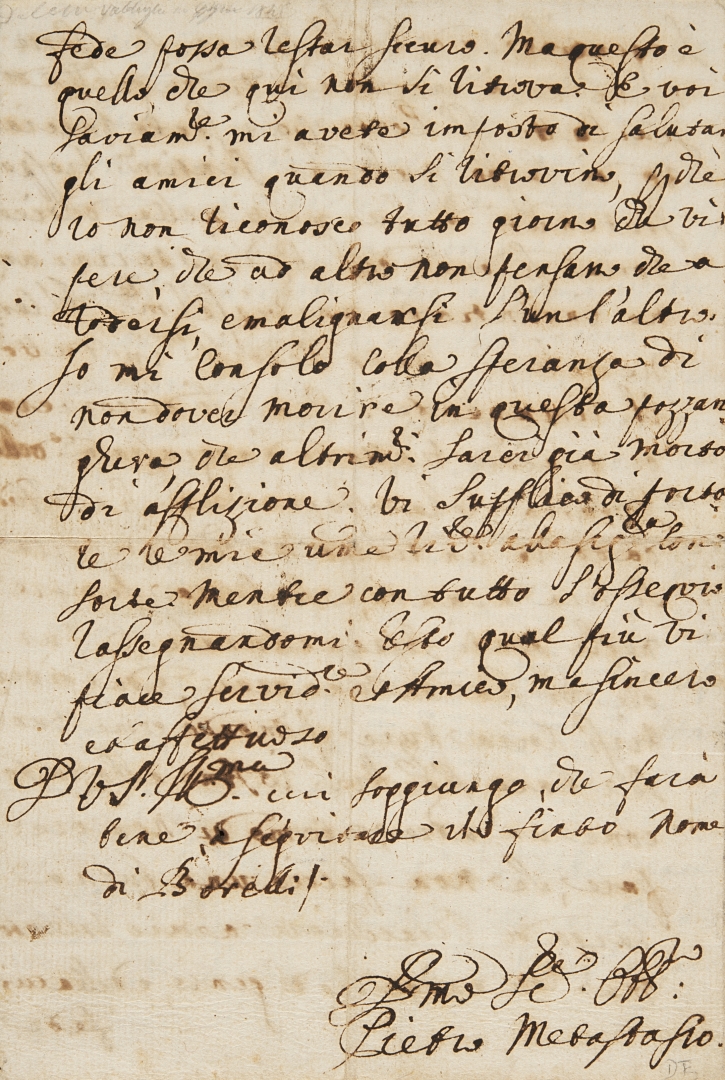 fede possa restar sicuro. Ma questo è
quello, che qui non si ritrova. E voi
saviam.te mi avete imposto di salutar
gli amici quando si ritrovino, perchè
io non riconosco tutto giorno che vi
pere, che ad altro non pensano che a
rodersi, e malignarsi l'un l'altro.
Io mi consolo colla speranza di
non dover morire in questa pozzan
ghera, che altrim.ti sarei già morto
di afflizione. Vi supplico di porta
re le mie alla sig.ra Con
sorte. Mentre con tutto l'ossequio
rassegnandomi. Resto qual più vi
piace servid.re et Amico, ma sincero
ed affettuoso
D VS. Ill.ma cui soggiungo, che farà
bene, a seguitare il finto nome
di Borelli
Se.
Pietro Metastasio.